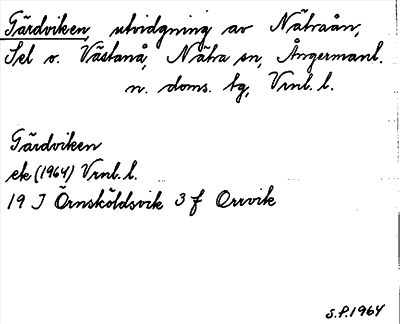 Gärdviken, utvidgning av Nätraån,
Sel o. Västanå, Nätra sn, Ångermanl.
n. doms. tg, Vrnl. l.
Gärdviken
ek (1964) Vrnl. l.
19 J Örnsköldsvik 3 f Orrvik
S.P. 1964